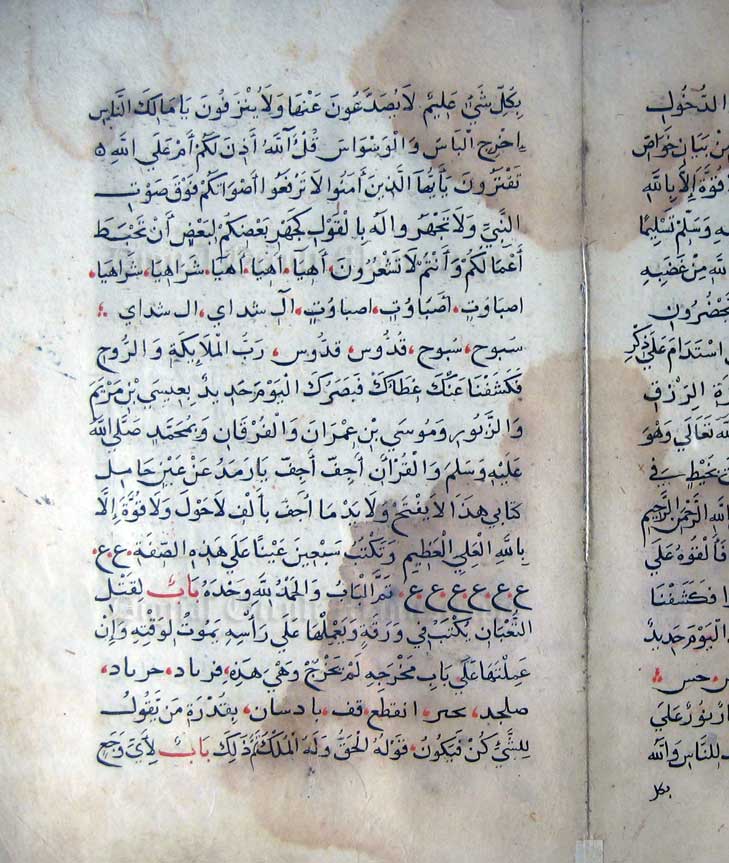 بِكُلِّ شَيْءٍ عَلِيمٌ لَا يُصَدَّعُونَ عَنْهَا وَلَا يُنْزِفُونَ يَا مَالِكَ النَّاسِ
اخْرِجِ الْبَاسَ وَالْوَسْوَاسِ قُلْ آللَّهُ أَذِنَ لَكُمْ أَمْ عَلَى اللَّهِ
تَفْتَرُونَ يَا أَيُّهَا الَّذِينَ آمَنُوا لَا تَرْفَعُوا أَصْوَاتَكُمْ فَوْقَ صَوْتِ
النَّبِيِّ وَلَا تَجْهَرُوا لَهُ بِالْقَوْلِ كَجَهْرِ بَعْضِكُمْ لِبَعْضٍ أَنْ تَحْبَطَ
أَعْمَالُكُمْ وَأَنْتُمْ لَا تَشْعُرُونَ، أَهْيَا، أَهْيَا، أَهْيَا، شَرَاهِيَا، شَرَاهِيَا،
اصباوت، اصباوت، اصباوت، ال شداي، ال شداي
سبوح، سبوح، قدوس، قدوس، رَبُّ الْمَلَائِكَةِ وَالرُّوحِ
فَكَشَفْنَا عَنْكَ غِطَاءَكَ فَبَصَرُكَ الْيَوْمَ حَدِيدٌ بِعِيسَى بْنِ مَرْيَمَ
وَالزَّبُورِ وَمُوسَى بْنِ عِمْرَانَ وَالْفُرْقَانِ وَبِمُحَمَّدٍ صَلَّى اللَّهُ
عَلَيْهِ وَسَلَّمَ وَالْقُرْآنِ أَجِفّ أَجِفّ يَا رَمَدُ عَنْ عَيْنِ حَامِلِ
كتابي هَذَا لَا يَفْتَحْ وَلَا بُدَّ مَا أَجِفّ بِأَلْفِ لَا حَوْلَ وَلَا قُوَّةَ إِلَّا
بِاللَّهِ الْعَلِيِّ الْعَظِيمِ وَتَكْتُبُ سَبْعِينَ عَيْنًا عَلَى هَذِهِ الصِّفَةِ ع.ع.
ع.ع.ع.ع.ع.ع.ع. تَمَّ الْبَابُ وَالْحَمْدُ لِلَّهِ وَحْدَهُ بَابٌ لِقَتْلِ
الثُّعْبَانِ يُكْتَبُ فِي وَرَقَةٍ وَيَعْمِلُهَا عَلَى رَأْسِهِ يَمُوتُ لِوَقْتِهِ وَإِنْ
عَمِلْتَهَا عَلَى بَابِ مَخْرَجِهِ لَمْ يَخْرُجْ وَهِيَ هَذِهِ، فرياد، حرياد،
صلجد، انقطع، قف، يادسان، بِقُدْرَةِ مَنْ يَقُولُ
لِلشَّيْءِ كُنْ فَيَكُونُ، قَوْلُهُ الْحَقُّ وَلَهُ الْمُلْكُ تَمَّ ذَلِكَ بَابٌ لِأَيِّ وَجَعٍ
الدُّخُولِ
مِنْ بَيَانِ خَوَاصِّ
قُوَّةَ إِلَّا بِاللَّهِ
وَسَلَّمَ تَسْلِيمًا
اللَّهِ مِنْ غَضَبِهِ
يَحْضُرُونِ
اسْتَدَامَ عَلَى ذِكْرِ
الرِّزْقِ
اللَّهُ تَعَالَى وَهُوَ
يَخِيطُ فِي
اللَّهِ الرَّحْمَنِ الرَّحِيمِ
فَأَلْقُوهُ عَلَى
فَكَشَفْنَا
الْيَوْمَ حَدِيدٌ
حس
نُورٌ عَلَى
لِلنَّاسِ وَاللَّهُ
بكل